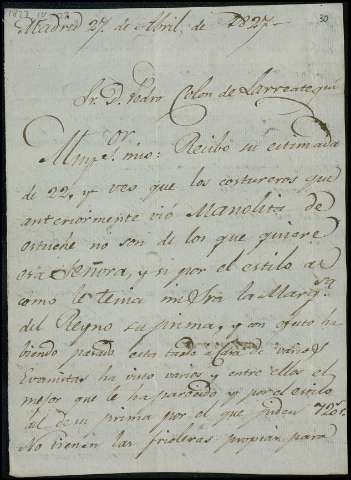 1827 IV
30
Madrid 27 de Abril de 1827
Sr. D. Pedro Colon de Larreategui
Muy Sr. mio: Recibo su estimada
de 22, y veo que los costureros que
anteriormente vió Manolita de
estuche no son de los que quiere
esa Señora, y si por el estilo de
como le tenia mi Sra. la Marqsa.
del Reyno su prima, y en efeto ha
biendo pasado esta tarde a Casa de varios
Evanistas ha visto varios y entre ellos el
mejor que le ha parecido y por el estilo
al de su prima por el que piden 720 r.
No tienen las frioleras propias para